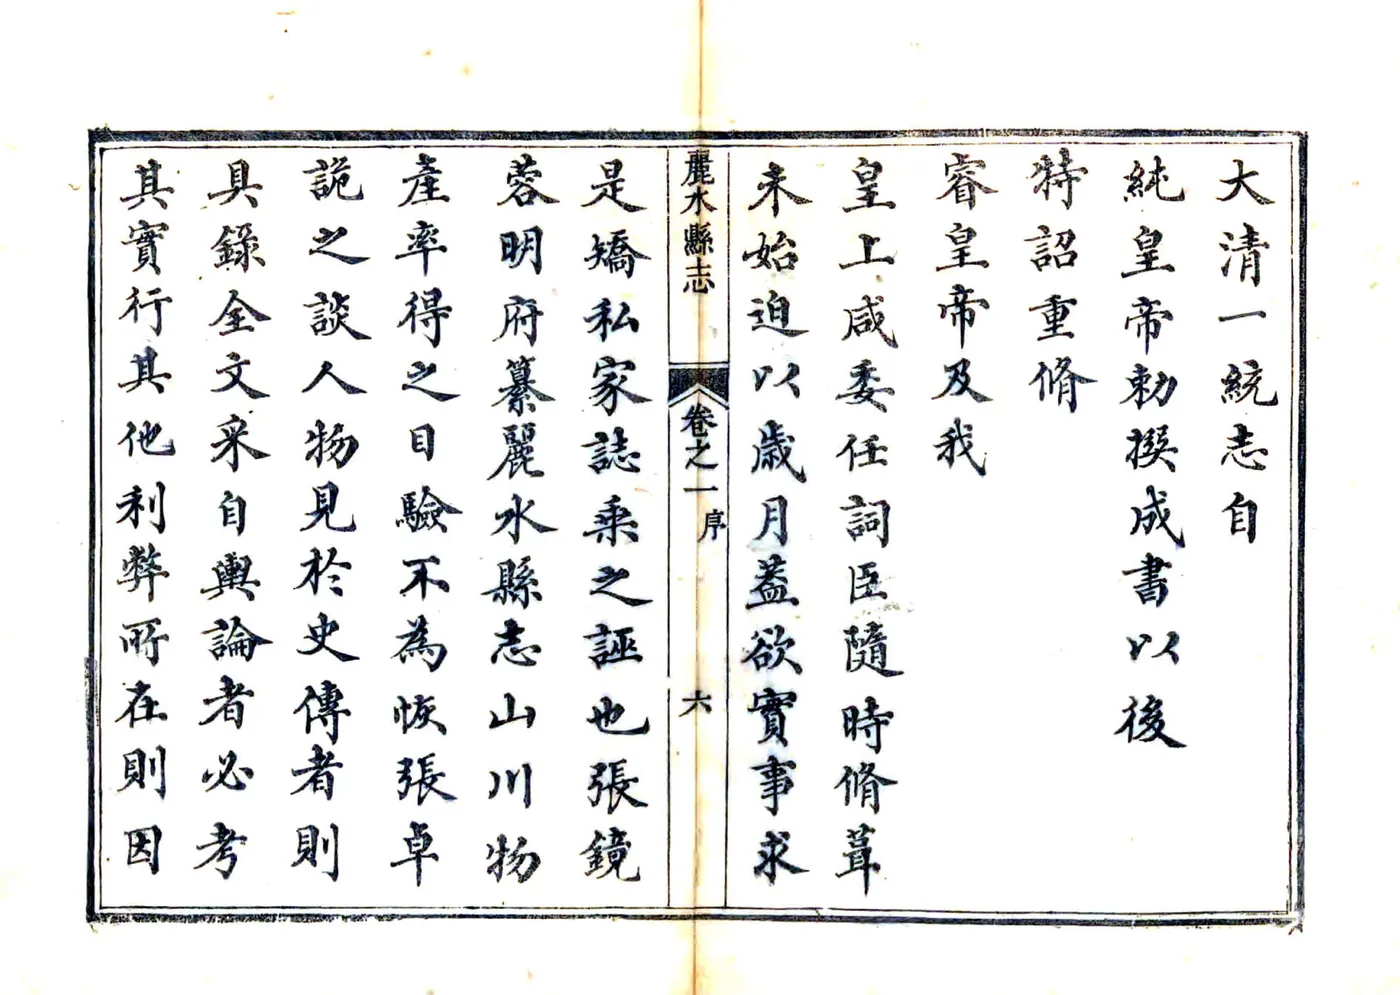 大清一統志自
純皇帝勅撰成書以後
特詔重脩
睿皇帝及我
皇上咸委任詞臣隨時脩葺
未始迫以歲月蓋欲實事求
麗水縣志
卷之一
序
六
是矯私家誌乘之誣也張鏡
蓉明府纂麗水縣志山川物
產率得之目驗不為恢張卓
詭之談人物見於史傳者則
具錄全文采自輿論者必考
其實行其他利弊所在則因